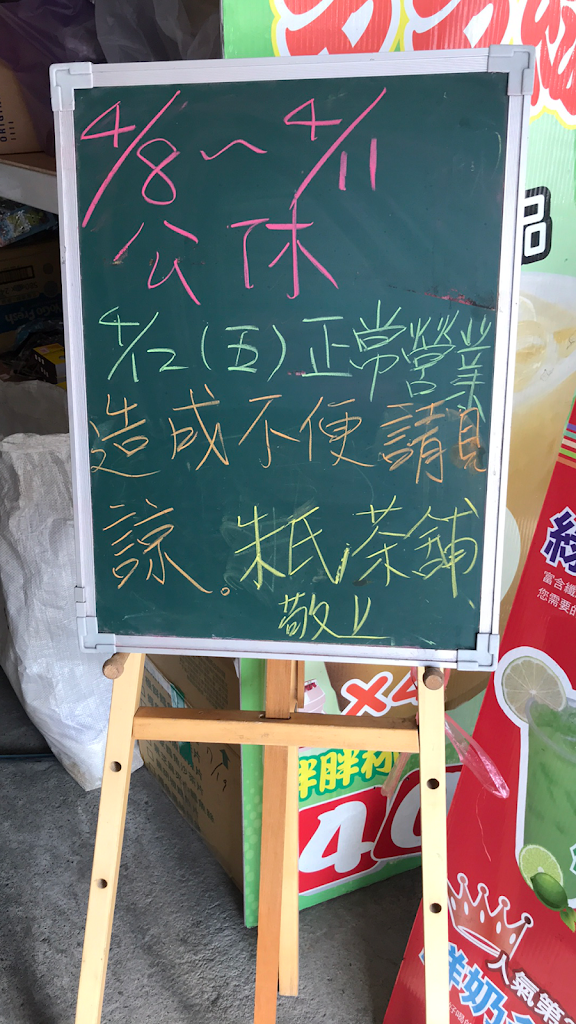 4/8~4/11
公休
4/12(五)正常營業
造成不便請見
諒。朱氏茶舖
敬上
品
×4
胖胖杯
40
富含纖
您需要的
人氣第
鮮奶
ORIGIN